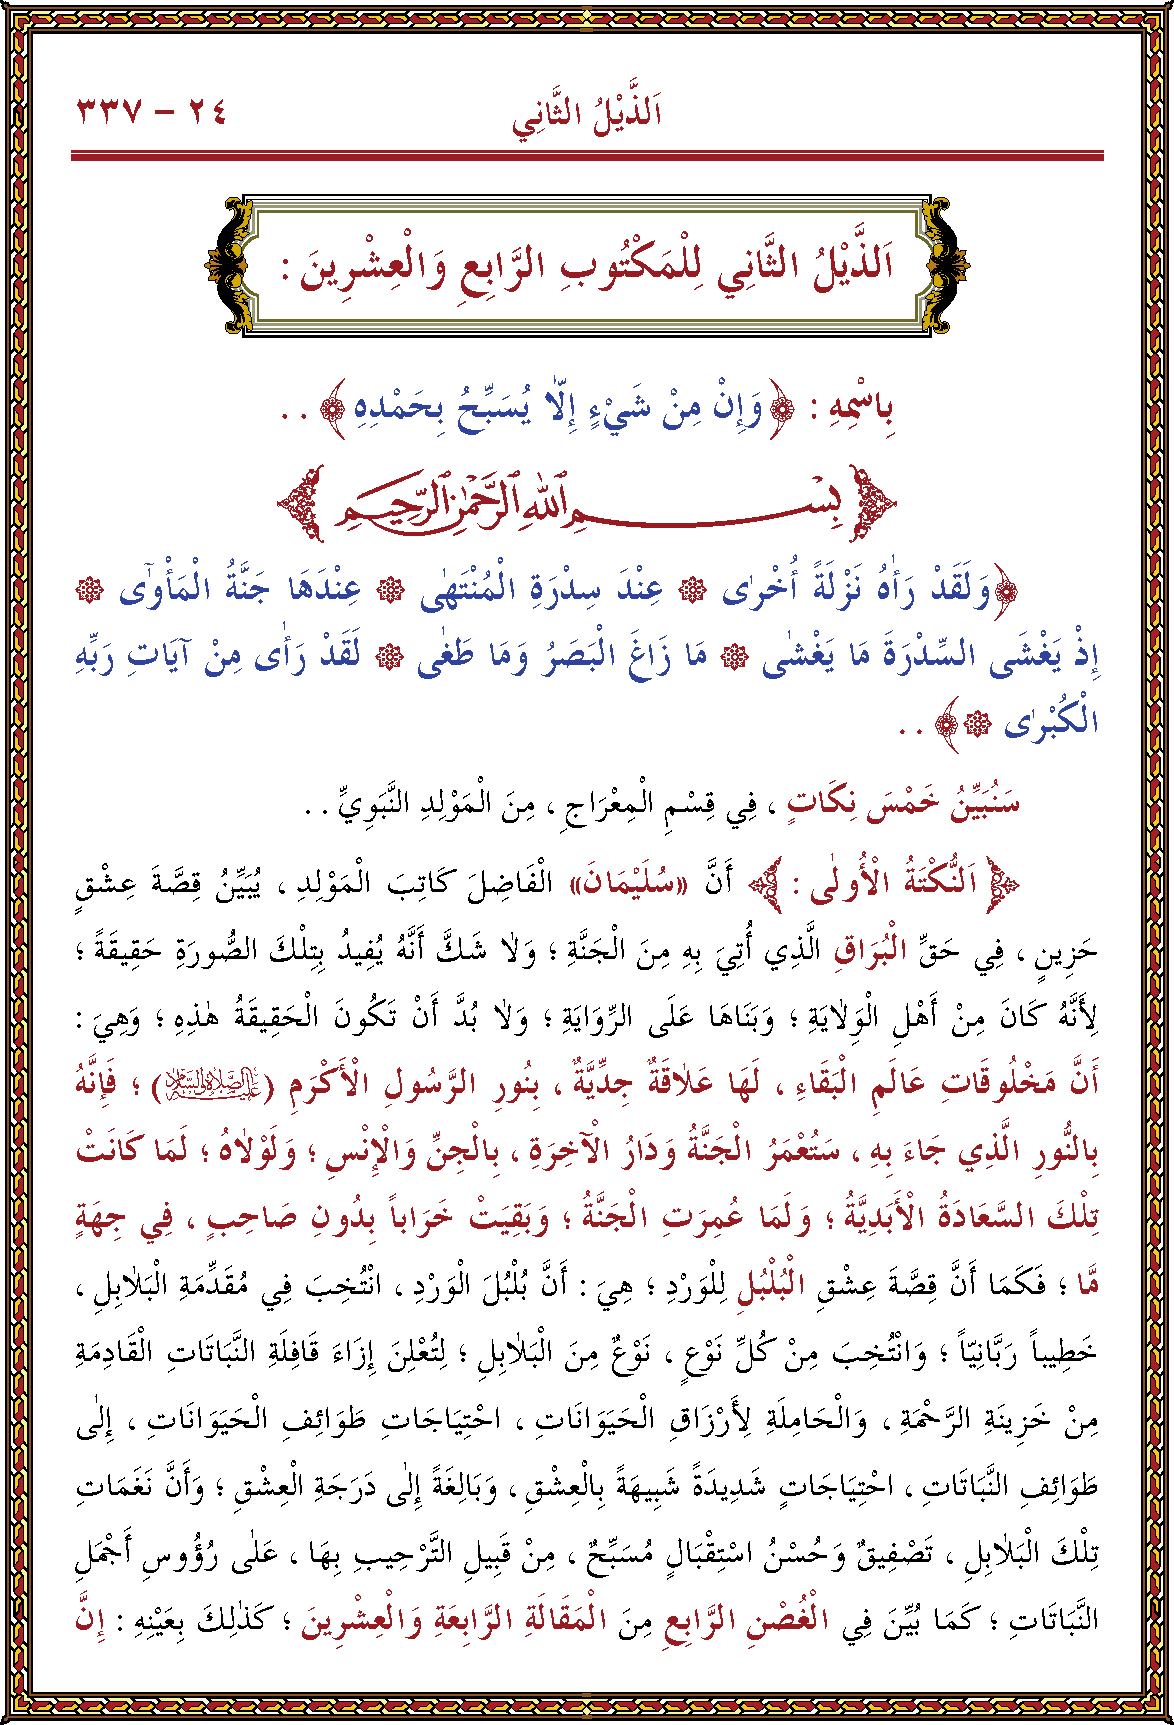 اَلذَّيْلُ الثَّانِي
٢٤ - ٣٣٧
اَلذَّيْلُ الثَّانِي لِلْمَكْتُوبِ الرَّابِعِ وَالْعِشْرِينَ :
بِاسْمِهِ : ﴿وَإِنْ مِنْ شَيْءٍ إِلَّا يُسَبِّحُ بِحَمْدِهِ﴾ . .
بِسْمِ اللهِ الرَّحْمٰنِ الرَّحِيمِ
﴿وَلَقَدْ رَاٰهُ نَزْلَةً أُخْرٰى ۞ عِنْدَ سِدْرَةِ الْمُنْتَهٰى ۞ عِنْدَهَا جَنَّةُ الْمَأْوٰٓى ۞
إِذْ يَغْشَى السِّدْرَةَ مَا يَغْشٰى ۞ مَا زَاغَ الْبَصَرُ وَمَا طَغٰى ۞ لَقَدْ رَاٰى مِنْ آيَاتِ رَبِّهِ
الْكُبْرٰى ۞﴾ . .
سَنُبَيِّنُ خَمْسَ نِكَاتٍ ، فِي قِسْمِ الْمِعْرَاجِ ، مِنَ الْمَوْلِدِ النَّبَوِيِّ . .
﴿اَلنُّكْتَةُ الْأُولٰى : ﴾ أَنَّ «سُلَيْمَانَ» الْفَاضِلَ كَاتِبَ الْمَوْلِدِ ، يُبَيِّنُ قِصَّةَ عِشْقٍ
حَزِينٍ ، فِي حَقِّ الْبُرَاقِ الَّذِي أُتِيَ بِهِ مِنَ الْجَنَّةِ ؛ وَلَا شَكَّ أَنَّهُ يُفِيدُ بِتِلْكَ الصُّورَةِ حَقِيقَةً ؛
لِأَنَّهُ كَانَ مِنْ أَهْلِ الْوَلَايَةِ ؛ وَبَنَاهَا عَلَى الرِّوَايَةِ ؛ وَلَا بُدَّ أَنْ تَكُونَ الْحَقِيقَةُ هٰذِهِ ؛ وَهِيَ :
أَنَّ مَخْلُوقَاتِ عَالَمِ الْبَقَاءِ ، لَهَا عَلَاقَةٌ جِدِّيَّةٌ ، بِنُورِ الرَّسُولِ الْأَكْرَمِ (عَلَيْهِ الصَّلَاةُ وَالسَّلَامُ) ؛ فَإِنَّهُ
بِالنُّورِ الَّذِي جَاءَ بِهِ ، سَتُعْمَرُ الْجَنَّةُ وَدَارُ الْآخِرَةِ ، بِالْجِنِّ وَالْإِنْسِ ؛ وَلَوْلَاهُ ؛ لَمَا كَانَتْ
تِلْكَ السَّعَادَةُ الْأَبَدِيَّةُ ؛ وَلَمَا عُمِرَتِ الْجَنَّةُ ؛ وَبَقِيَتْ خَرَاباً بِدُونِ صَاحِبٍ ، فِي جِهَةٍ
مَّا ؛ فَكَمَا أَنَّ قِصَّةَ عِشْقِ الْبُلْبُلِ لِلْوَرْدِ ؛ هِيَ : أَنَّ بُلْبُلَ الْوَرْدِ ، انْتُخِبَ فِي مُقَدِّمَةِ الْبَلَابِلِ ،
خَطِيباً رَبَّانِيّاً ؛ وَانْتُخِبَ مِنْ كُلِّ نَوْعٍ ، نَوْعٌ مِنَ الْبَلَابِلِ ؛ لِتُعْلِنَ إِزَاءَ قَافِلَةِ النَّبَاتَاتِ الْقَادِمَةِ
مِنْ خَزِينَةِ الرَّحْمَةِ ، وَالْحَامِلَةِ لِأَرْزَاقِ الْحَيَوَانَاتِ ، احْتِيَاجَاتِ طَوَائِفِ الْحَيَوَانَاتِ ، إِلٰى
طَوَائِفِ النَّبَاتَاتِ ، احْتِيَاجَاتٍ شَدِيدَةً شَبِيهَةً بِالْعِشْقِ ، وَبَالِغَةً إِلٰى دَرَجَةِ الْعِشْقِ ؛ وَأَنَّ نَغَمَاتِ
تِلْكَ الْبَلَابِلِ ، تَصْفِيقٌ وَحُسْنُ اسْتِقْبَالٍ مُسَبِّحٌ ، مِنْ قَبِيلِ التَّرْحِيبِ بِهَا ، عَلٰى رُؤُوسِ أَجْمَلِ
النَّبَاتَاتِ ؛ كَمَا بُيِّنَ فِي الْغُصْنِ الرَّابِعِ مِنَ الْمَقَالَةِ الرَّابِعَةِ وَالْعِشْرِينَ ؛ كَذٰلِكَ بِعَيْنِهِ : إِنَّ